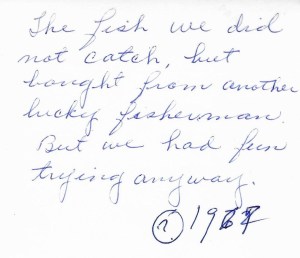 The fish we did
not catch, but
bought from another
lucky fisherman.
But we had fun
trying anyway.
(?) 1967